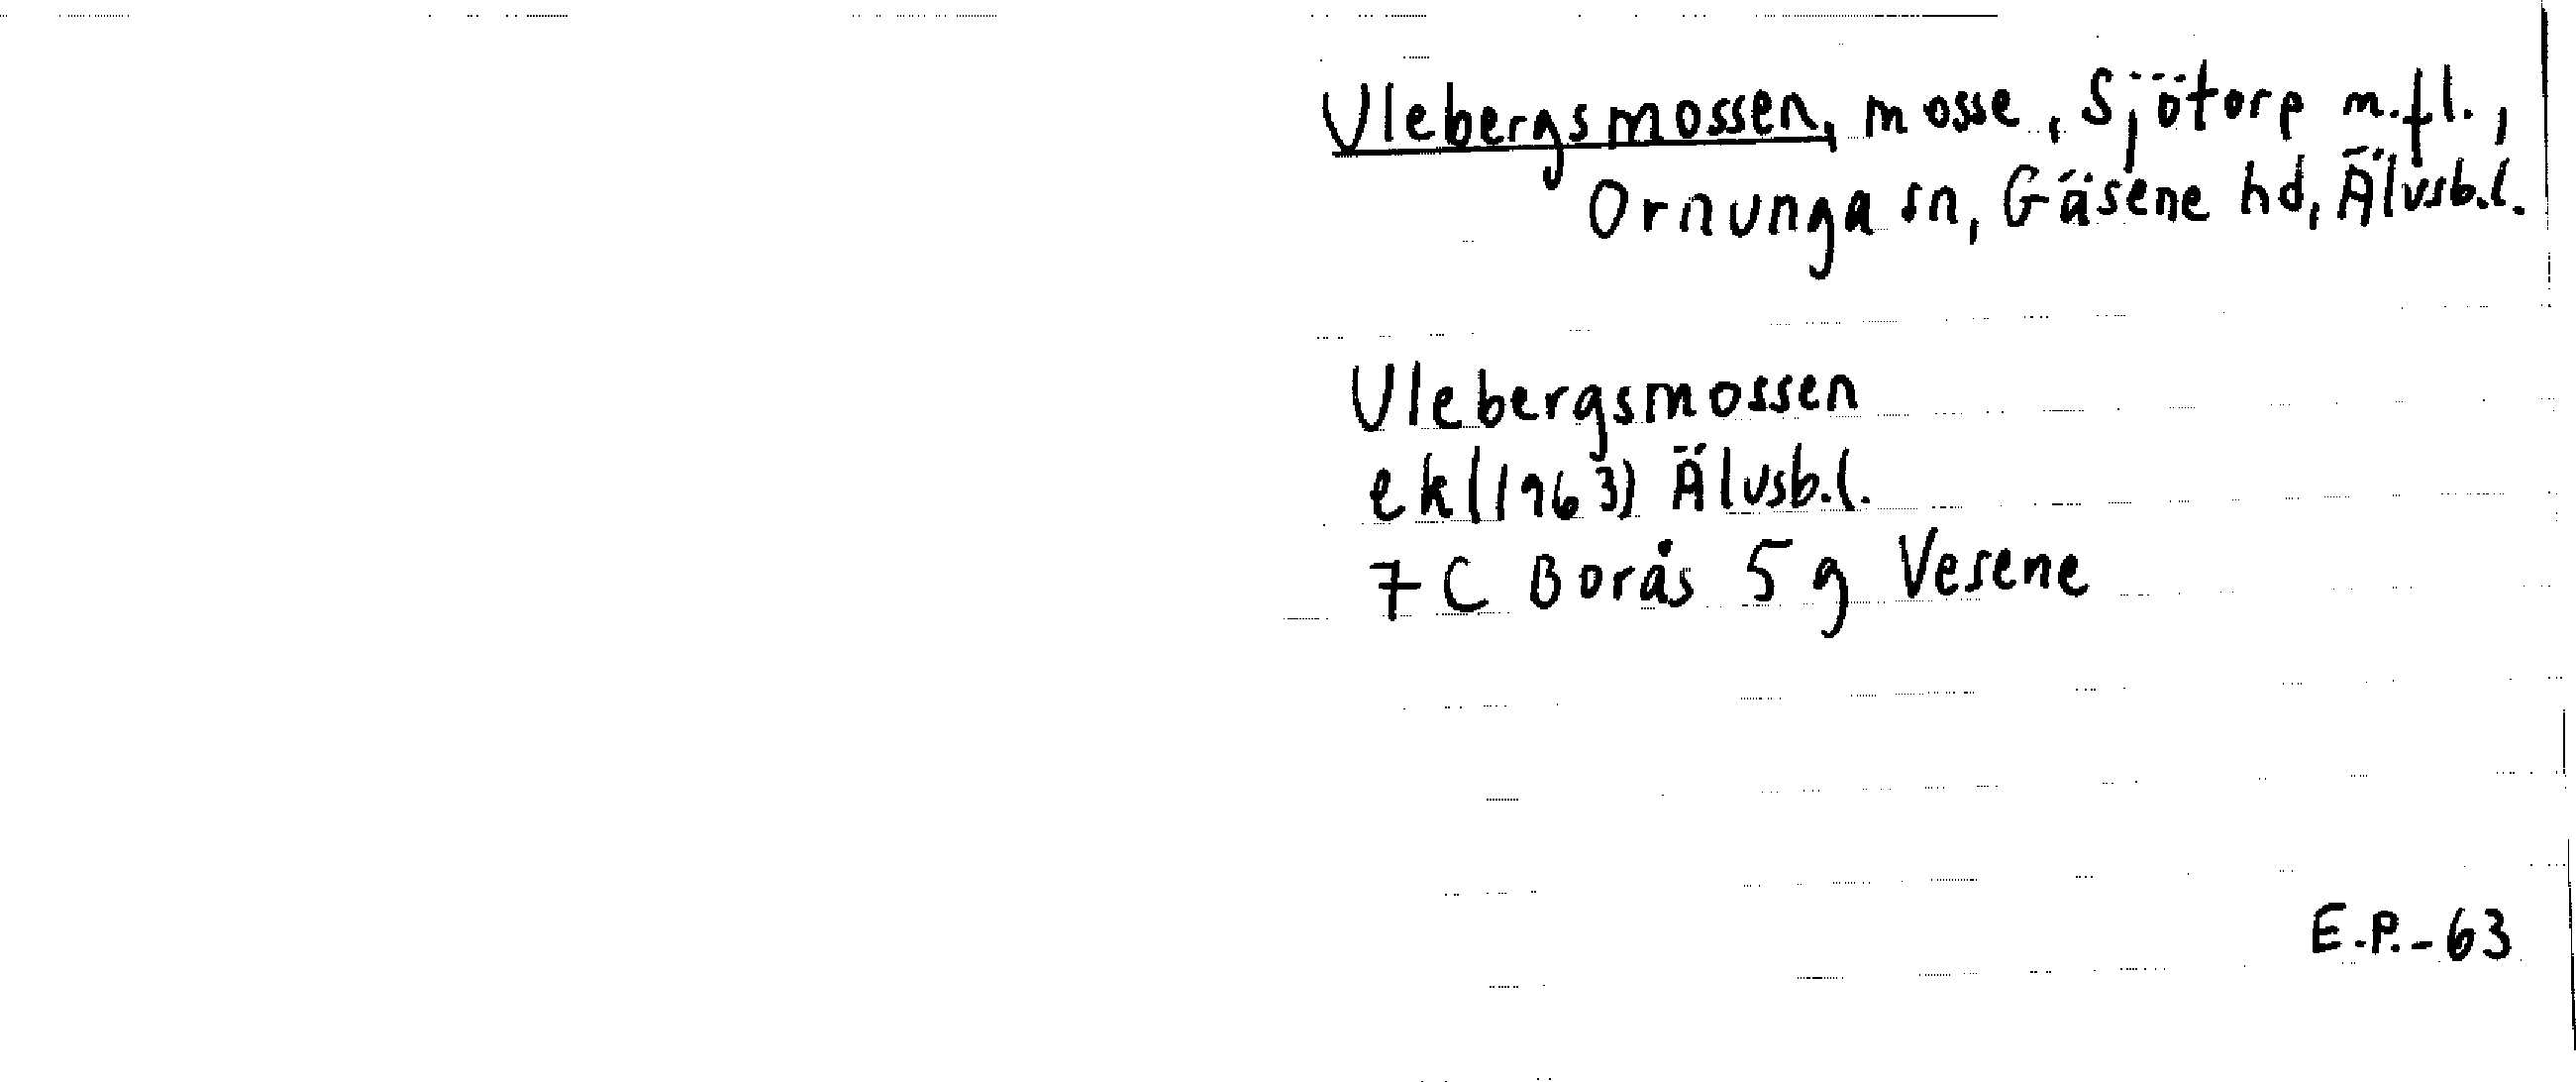 Ulebergsmossen, mosse, Sjötorp m.fl.,
Ornunga sn, Gäsene hd, Älvsb.l.
Ulebergsmossen
ek (1963) Älvsb.l.
7 C Borås 5 g Vesene
E.P.-63